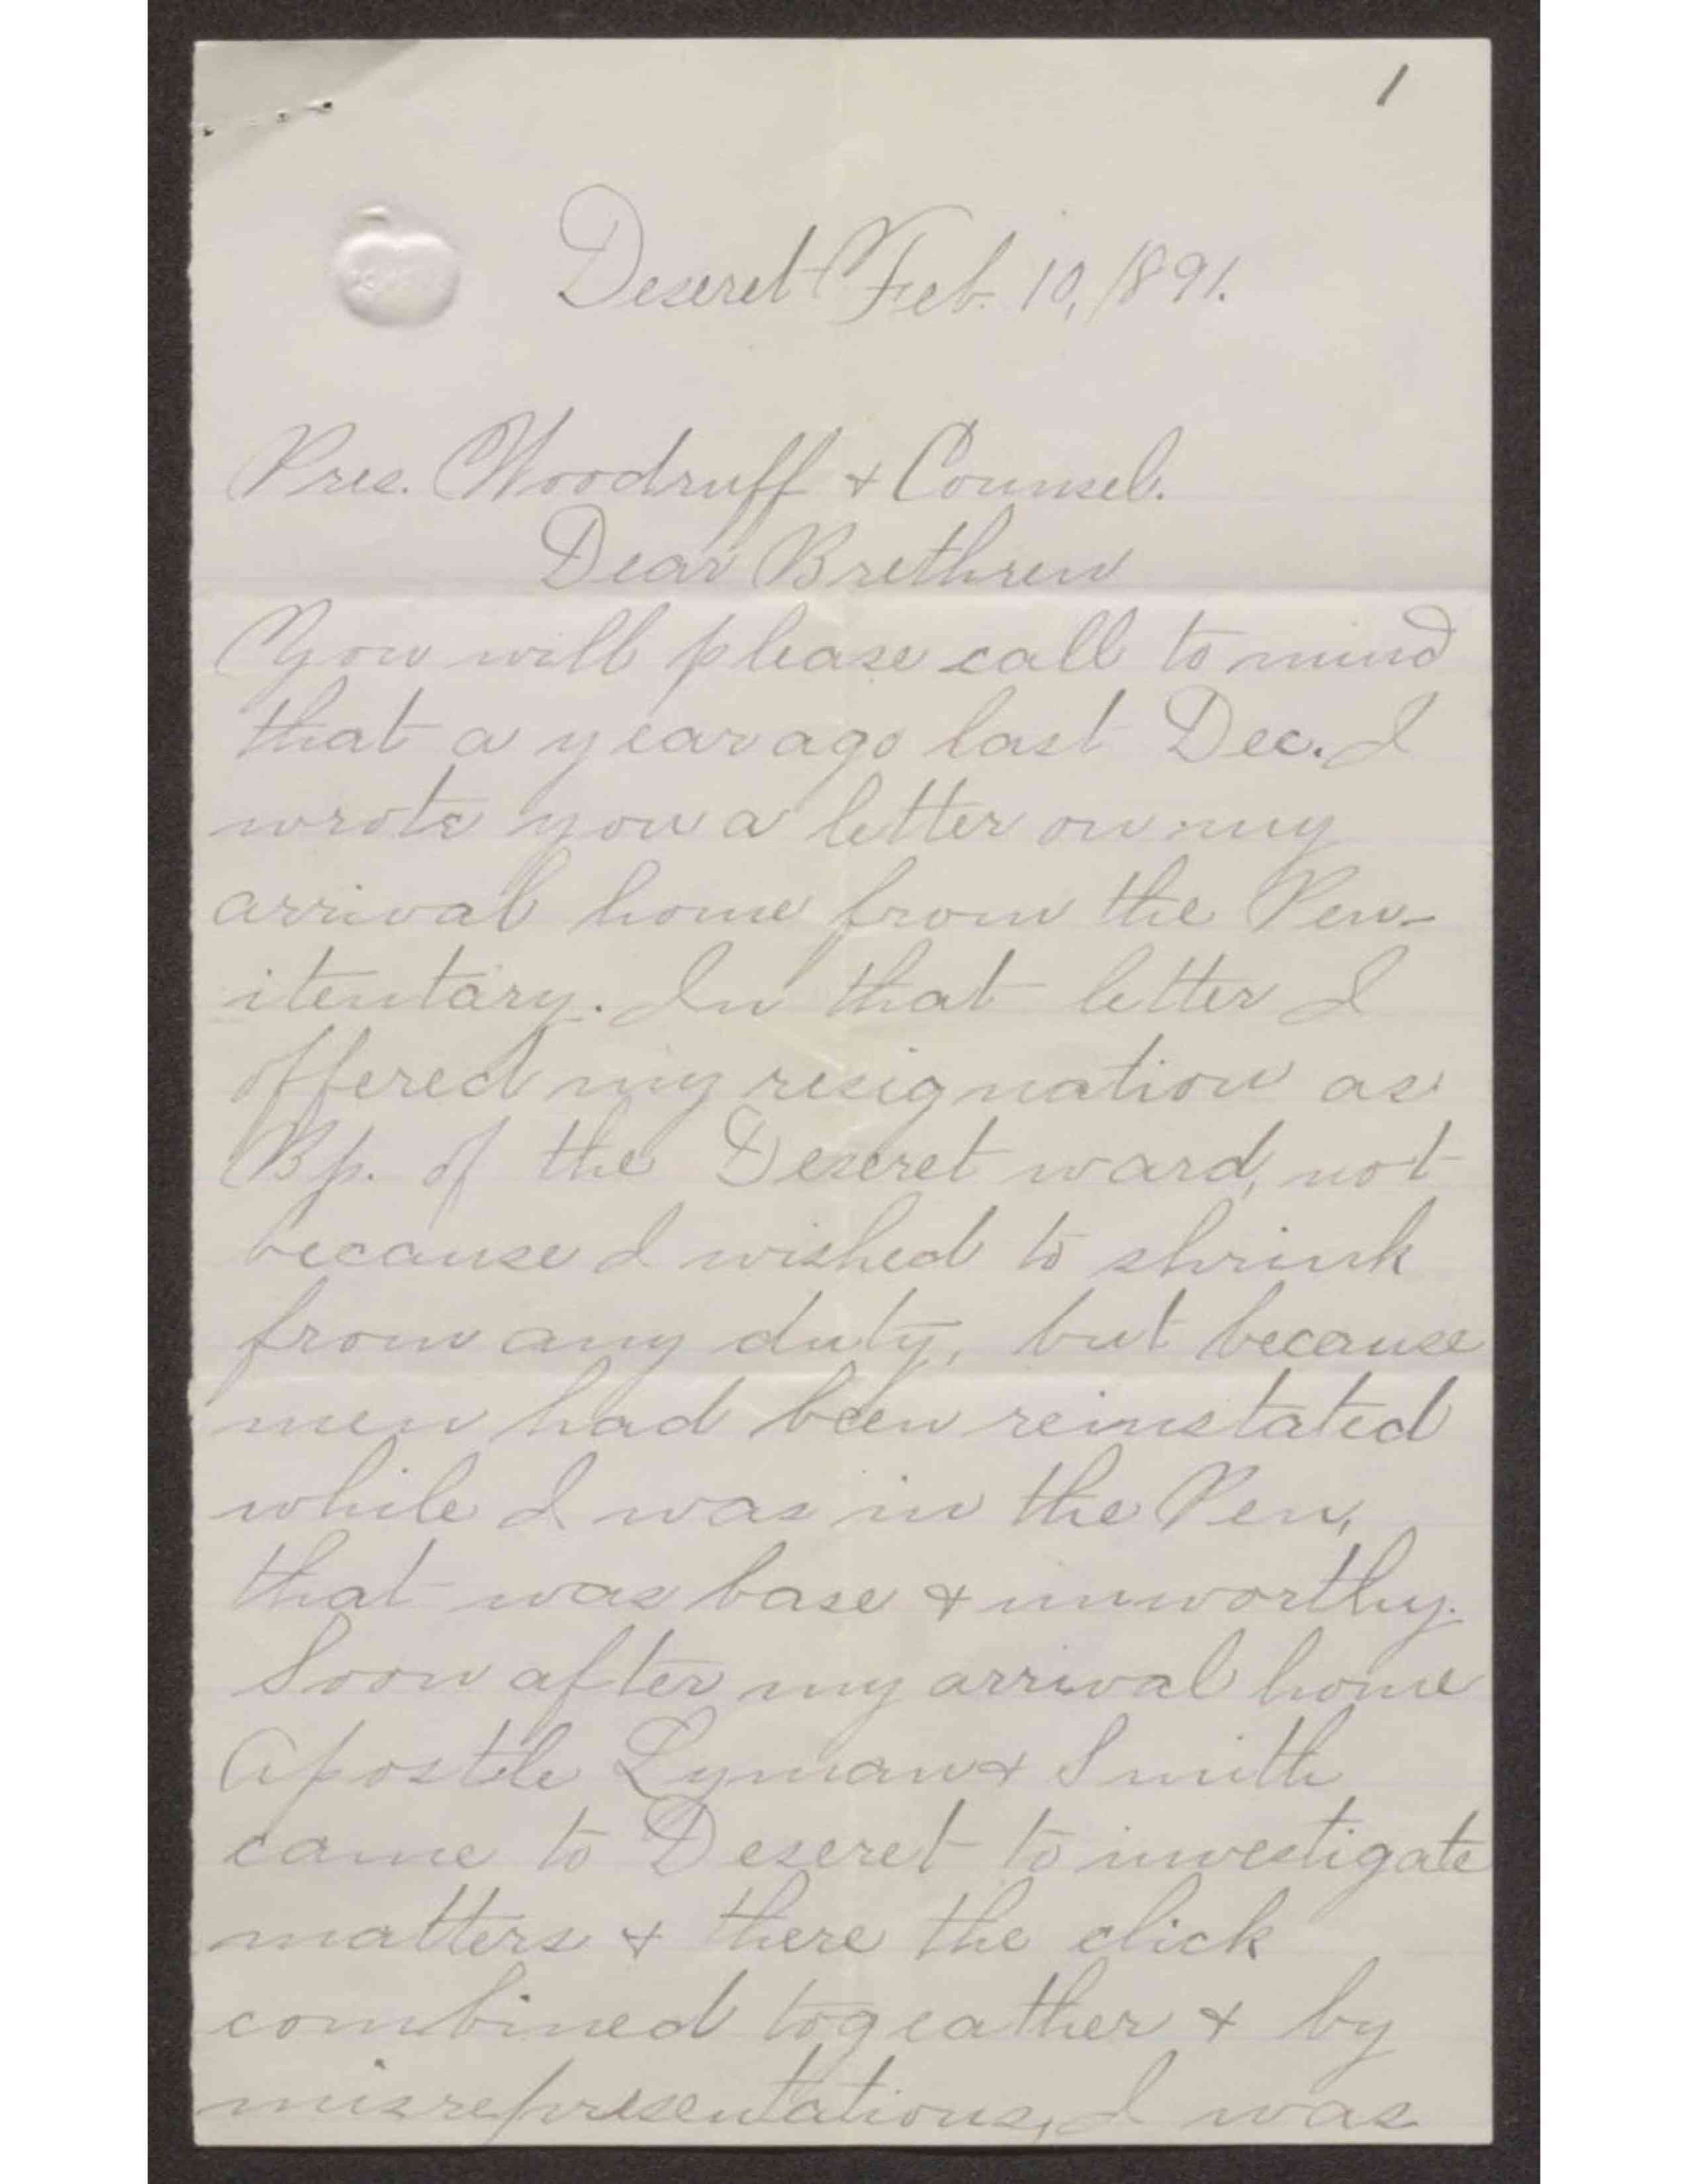 1
Deseret Feb. 10, 1891.
Pres. Woodruff & Counsel.
Dear Brethren
You will please call to mind
that a year ago last Dec. I
wrote you a letter on my
arrival home from the Pen-
itentary. In that letter I
offered my resignation as
Bp. of the Deseret ward, not
because I wished to shrink
from any duty, but because
men had been reinstated
while I was in the Pen,
that was base & unworthy.
Soon after my arrival home
Apostle Lyman & Smith
came to Deseret to investigate
matters & there the click
combined togeather & by
misrepresentations, I was